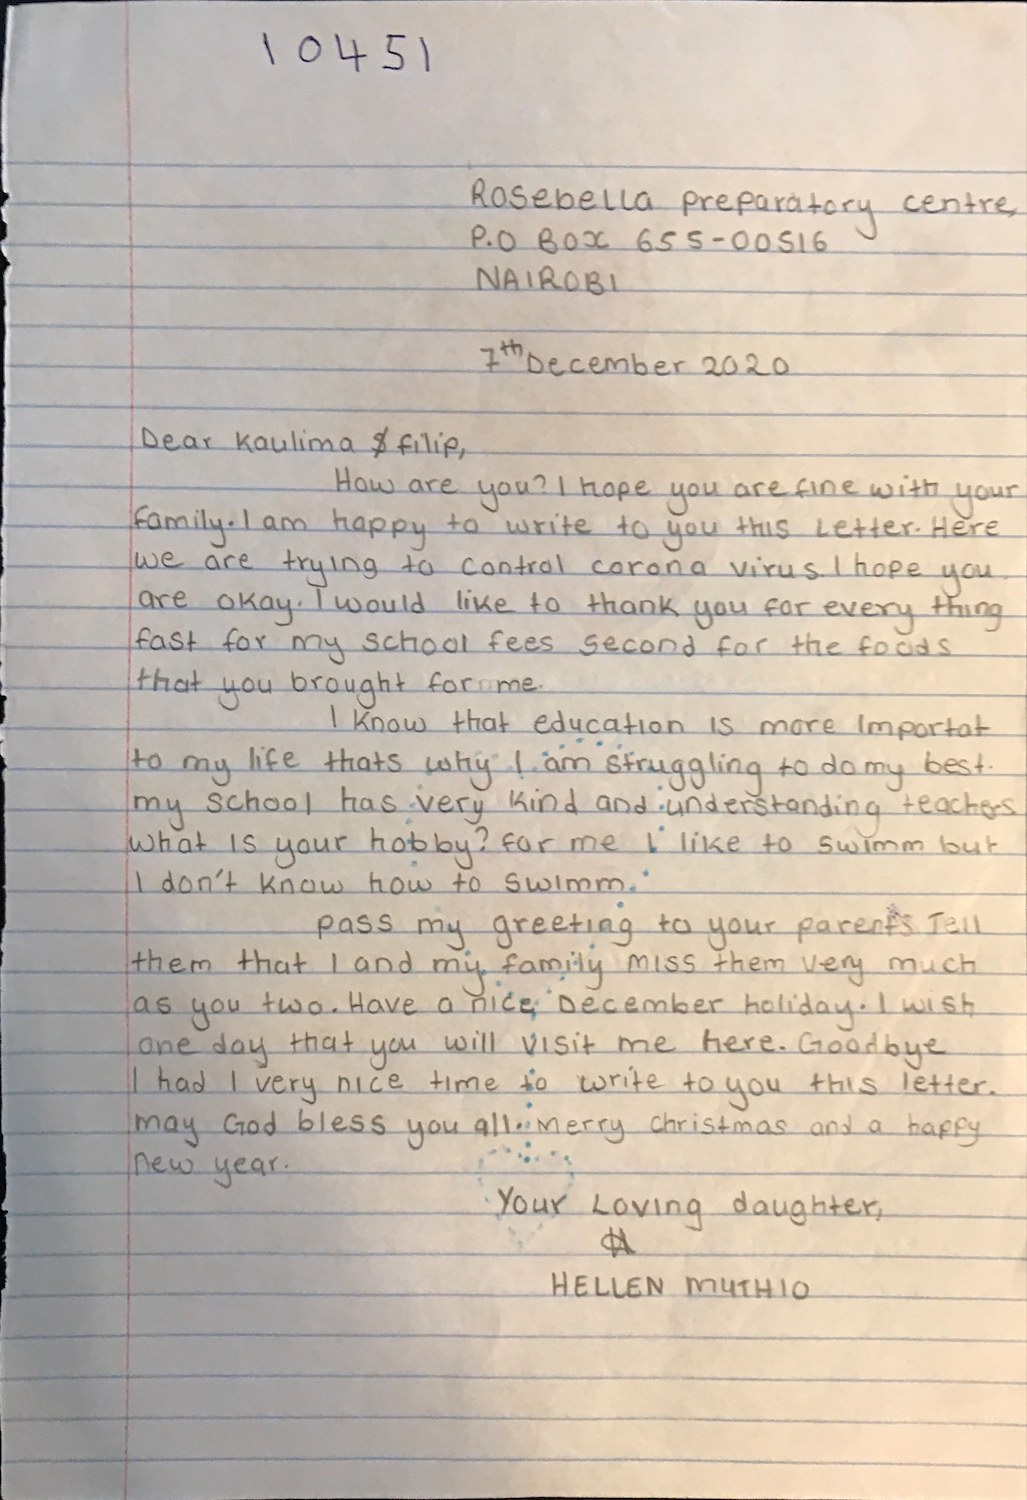 10451
Rosebella preparatory centre,
P.O BOX 655-00516
NAIROBI
7th December 2020
Dear Kaulima & filip,
How are you? I hope you are fine with your
family. I am happy to write to you this Letter. Here
we are trying to control corona virus. I hope you
are okay. I would like to thank you for every thing
fast for my school fees second for the foods
that you brought for me.
I know that education is more importat
to my life thats why I am struggling to do my best.
my school has very kind and understanding teachers
what is your hobby? for me i like to swimm but
I don't know how to swimm.
pass my greeting to your parents Tell
them that I and my family miss them very much
as you two. Have a nice December holiday. I wish
one day that you will visit me here. Goodbye
I had I very nice time to write to you this letter.
may God bless you all. merry christmas and a happy
new year.
Your Loving daughter,
HELLEN MUTHIO